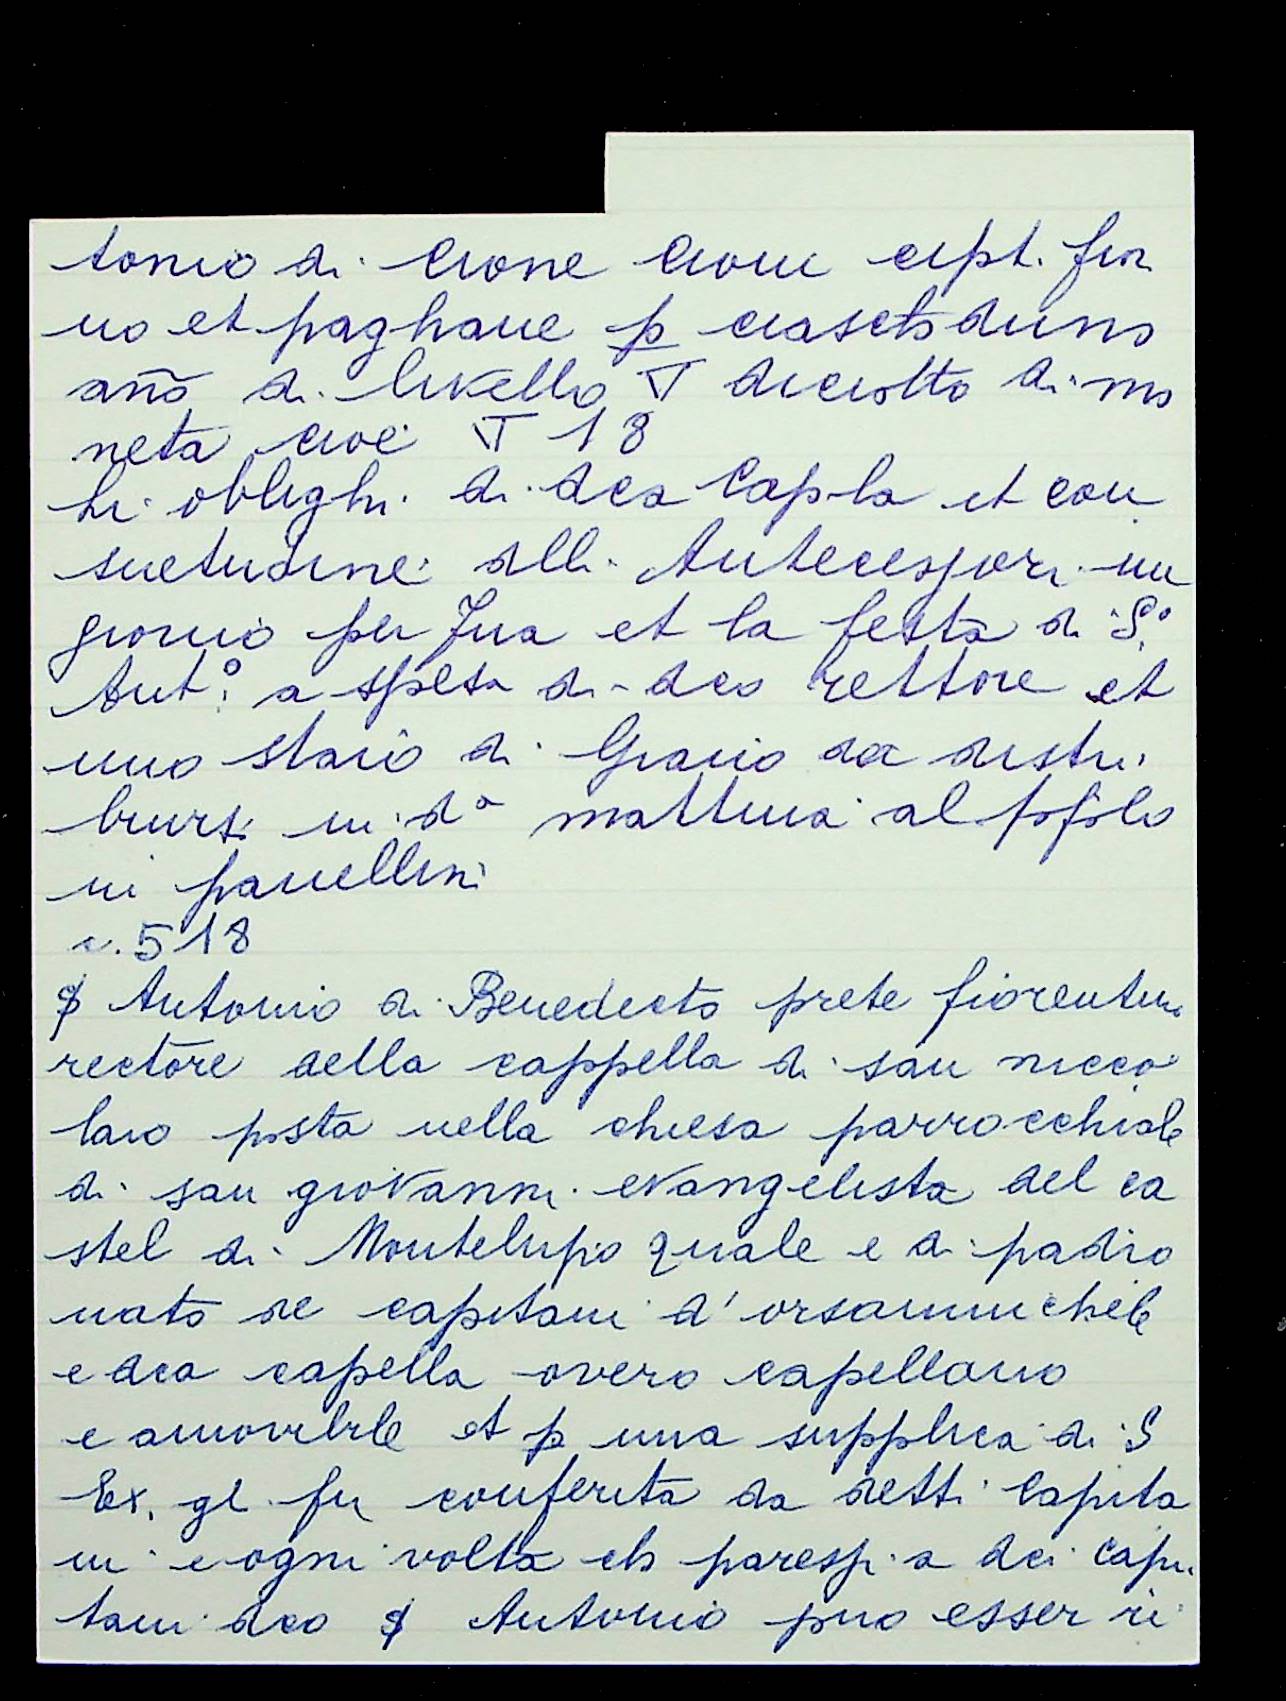 tonio di Cione Cioni cipt. fior
no et paghane p ciascheduno
año di livello ∇ diciotto di mo
neta cioè ∇ 18
li oblighi di dca Capla et con
suetudine alli Antecessori un
giorno per Jua et la festa di S.
Ant.° a spesa di dco rettore et
uno staio di Grano da distri
buirsi in da mattina al popolo
in panellini
c. 518
$ Antonio di Benedecto prete fiorentino
rectore della cappella di san nicco
laio posta nella chiesa parrocchiale
di san giovanni evangelista del ca
stel di Montelupo quale e di padro
nato de capitani d'orsanmichele
e dca capella overo capellano
e amovibile et p una supplica di S
Ex. gl. fu conferita da detti Capita
ni e ogni volta ch paressi a dci capi
tani dco $ Antonio puo esser ri